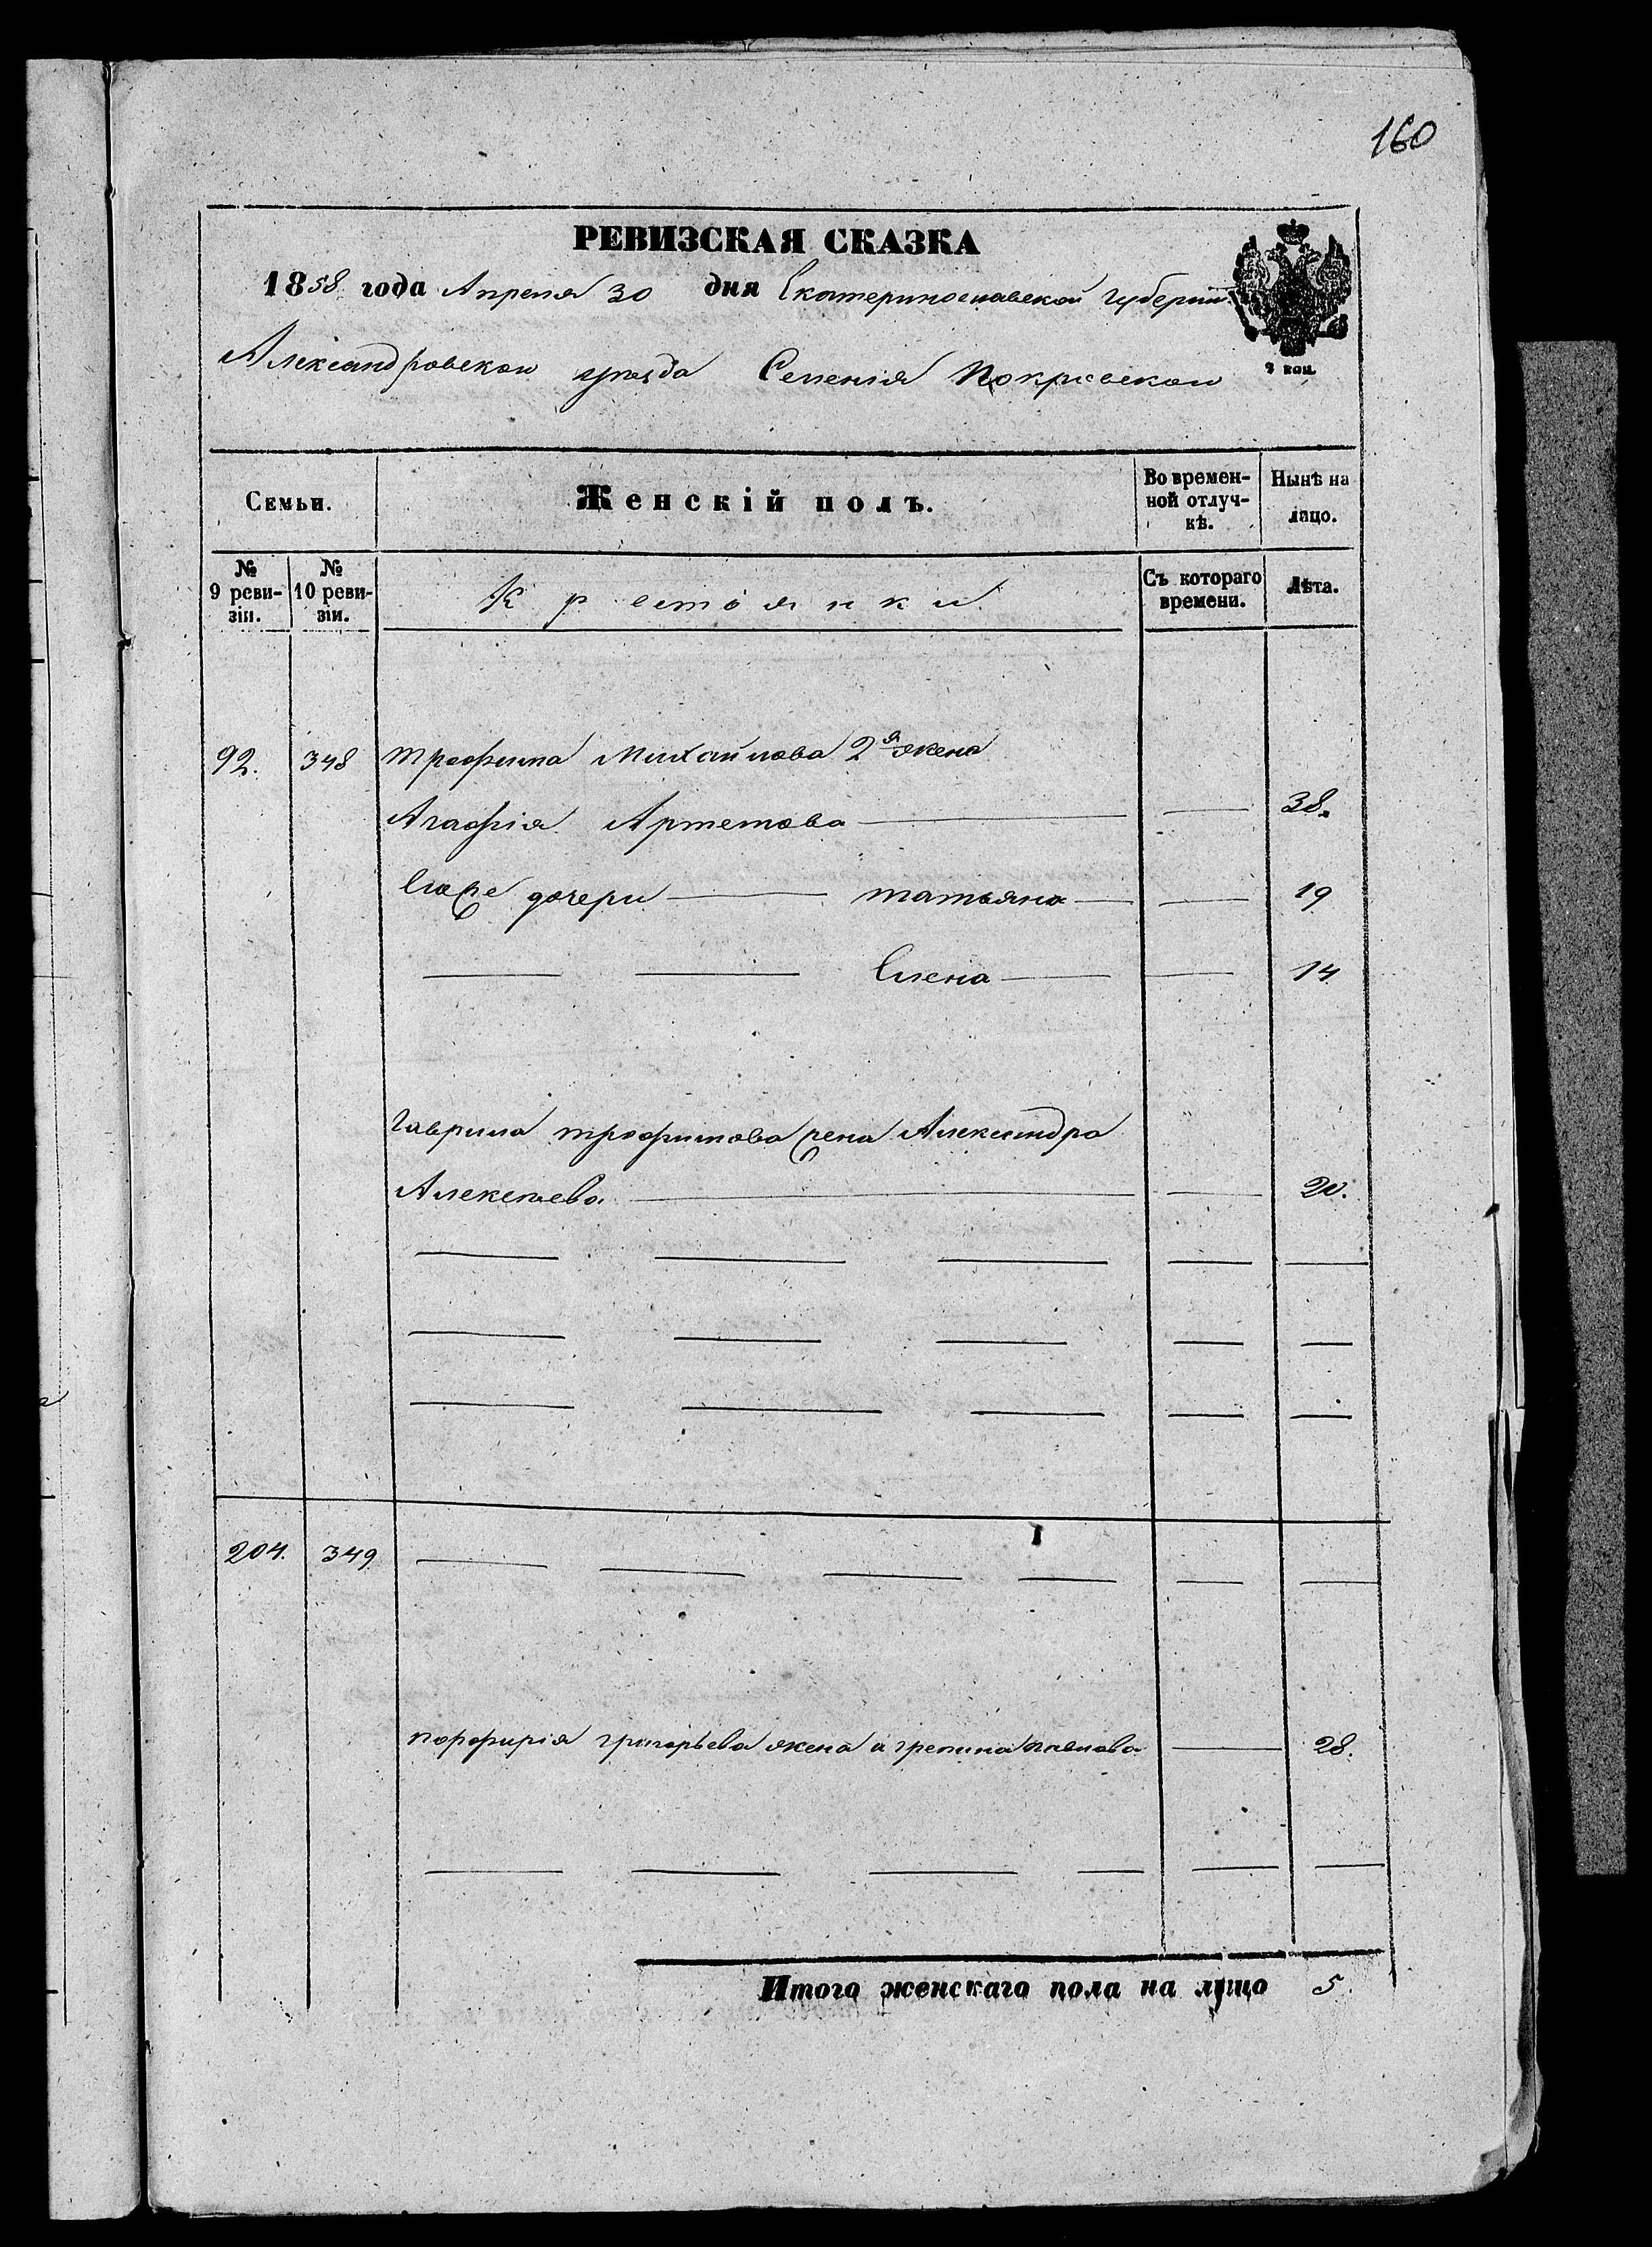 160
РЕВИЗСКАЯ СКАЗКА
1858 года Апреля 30 дня Екатеринославской губернии
Александровскои уезда Селенія Покровскои
2 коп.
Семьи. Женскій полъ. Во времен-ной отлуч-кѣ. Нынѣ на лицо.
№ 9 реви-зіи. № 10 реви-зіи. Крестьянки Съ котораго времени. Лѣта.
92. 348 Трофима Михайлова 2я жена
Агафія Артемова 38.
Его же дочери Татьяна 19
Елена 14
Гаврила Трофимова жена Александра
Алексеева 20.
204. 349
Порфирія Григорьева жена Агрепина Павлова 28.
Итого женскаго пола на лицо 5.